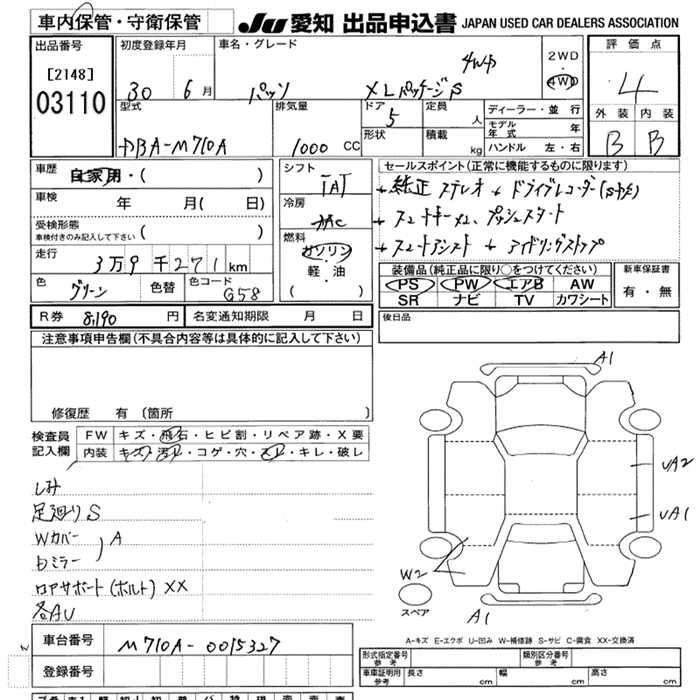 車内保管・守衛保管
JU 愛知 出品申込書 JAPAN USED CAR DEALERS ASSOCIATION
出品番号
[2148]
03110
初度登録年月
30 6月
車名・グレード
パッソ XLパッケージS 4WD
2WD
・
4WD
評価点
4
外装 内装
B B
型式
DBA-M710A
排気量
1000 CC
ドア 5
形状
定員 人
積載 kg
ディーラー・並行
モデル年式 年
ハンドル 左・右
車歴 自家用・( )
車検 年 月( 日)
受検形態
車検付きのみ記入して下さい ( )
走行 3万9千271km
色 グリーン 色替 色コード G58
シフト
IAT
冷房
AAC
燃料
ガソリン
・
軽・油
( )
セールスポイント(正常に機能するものに限ります)
純正ステレオ ドライブレコーダー
スマートキーx2、プッシュスタート
スマートアシスト アイドリングストップ
装備品(純正品に限り○をつけてください)
PS PW エアB AW
SR ナビ TV カワシート
新車保証書
有・無
R券 8,190 円 名変通知期限 月 日
後日品
注意事項申告欄(不具合内容等は具体的に記入して下さい)
修復歴 有 (箇所 )
検査員記入欄
FW キズ・飛石・ヒビ割・リペア跡・X要
内装 キズ・汚レ・コゲ・穴・スレ・キレ・破レ
しみ
足廻りS
Wカバー
Dミラー ) A
ロアサポート(ボルト) XX
各AU
A1
UA2
UA1
W2
スペア
A1
A-キズ E-エクボ U-凹み W-補修跡 S-サビ C-腐食 XX-交換済
車台番号 M710A-0015327
登録番号
形式指定番号 参考
類別区分番号 参考
車庫証明用 参考 長さ cm 幅 cm 高さ cm